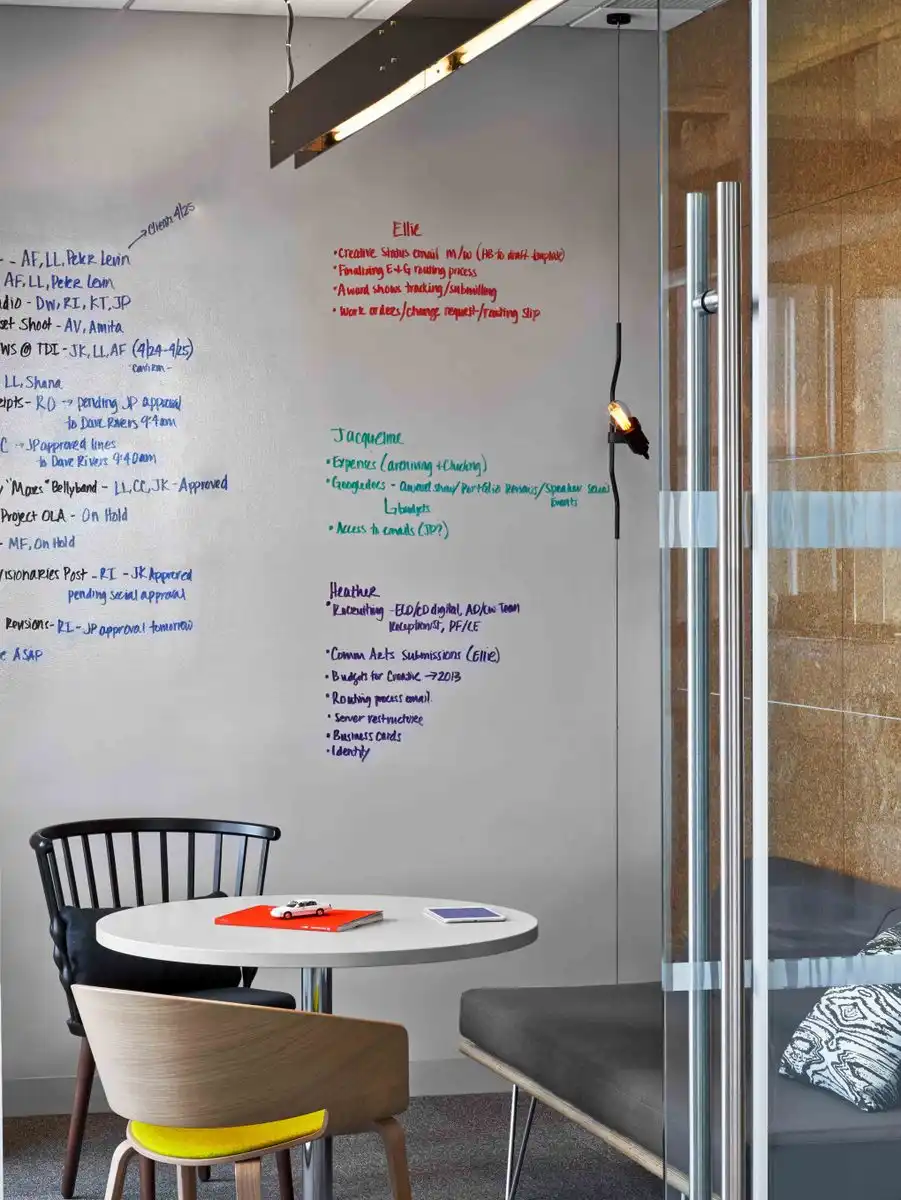 Client 4/25
- - AF, LL, Peter Levin
AF, LL, Peter Levin
dio - DW, RI, KT, JP
set Shoot - AV, Amita
WS @ TDI - JK, LL, AF (4/24-4/25)
LL, Shana
eipts - RO → pending JP approval
to Dave Rivers 9:4 am
C → JP approved lines
to Dave Rivers 9:40am
"Moxes" Bellyband - LL, CC, JK - Approved
Project OLA - On Hold
- MF, On Hold
isionaries Post - RI - JK Approved
pending social approval
Revisions - RI - JP approval tomorrow
e ASAP
Ellie
• Creative Status email M/W (HB to draft template)
• Finalizing E+G routing process
• Award shows tracking/submitting
• Work orders/change request/routing slip
Jacqueline
• Expenses (archiving + checking)
• Googledocs - award show/Portfolio Reviews/Speaker Series
Events
budgets
• Access to emails (JP?)
Heather
• Recruiting - ECD/CD digital, AD/CW Team
Receptionist, PF/CE
• Comm Arts Submissions (Ellie)
• Budgets for Creative → 2013
• Routing process email
• Server restructure
• Business Cards
• Identity